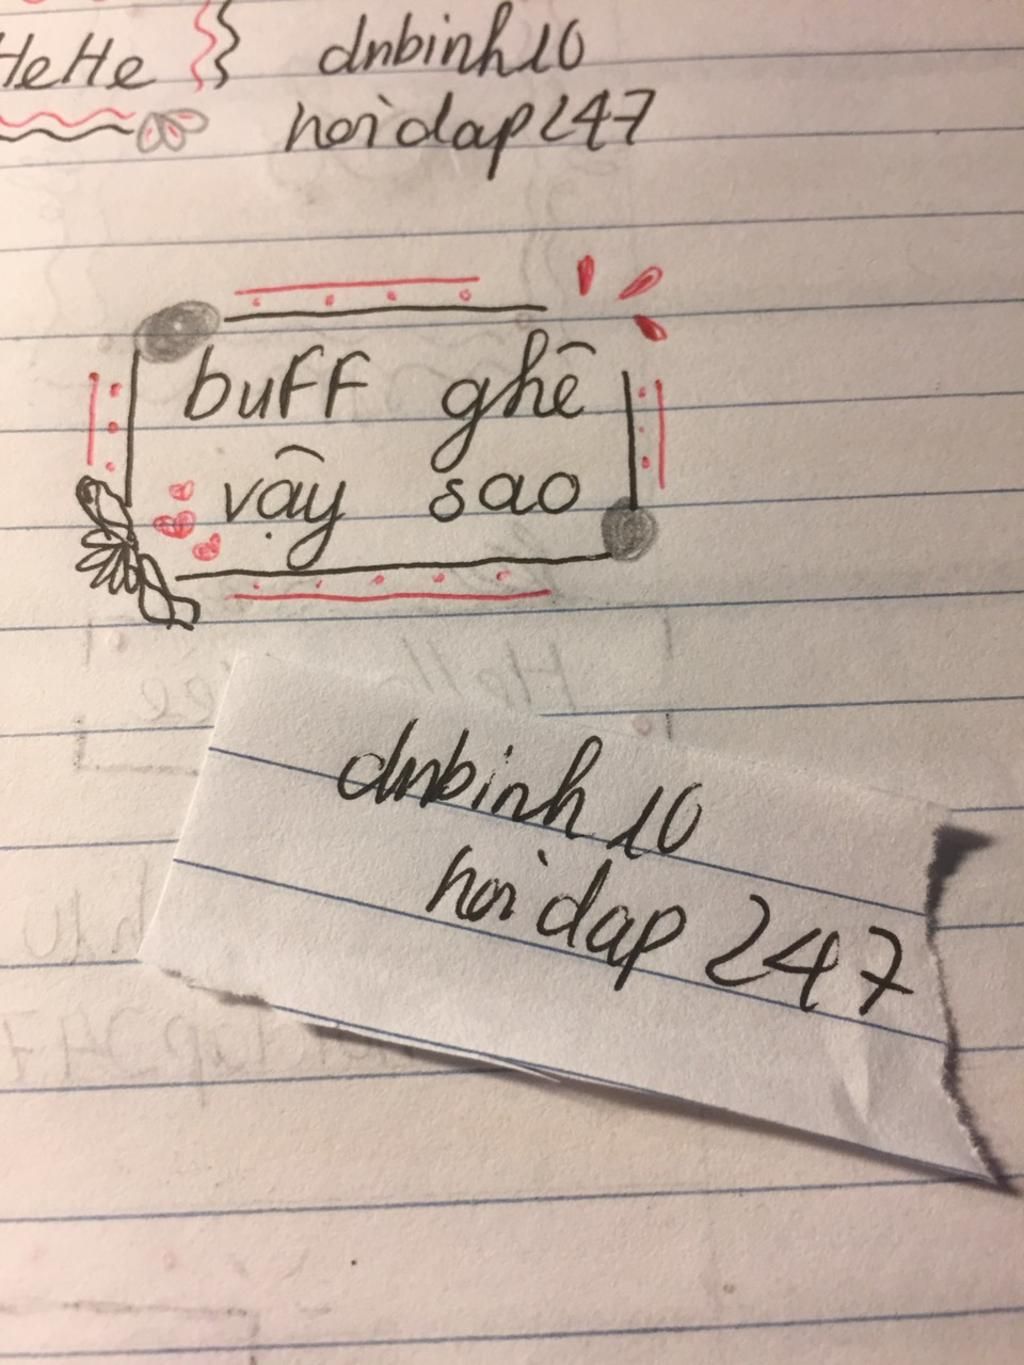 HeHe dnbinh10
hoidap247
buFF ghê
vậy sao
dnbinh 10
hoidap 247